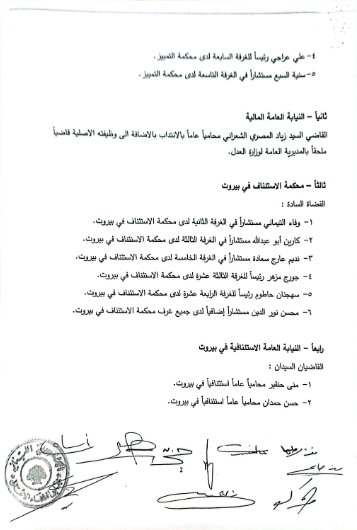 ٤- علي عراجي رئيساً للغرفة السابعة لدى محكمة التمييز.
٥- سنية السبع مستشاراً في الغرفة التاسعة لدى محكمة التمييز.
ثانياً – النيابة العامة المالية
القاضي السيد زياد المصري الشعراني محامياً عاماً بالانتداب بالاضافة الى وظيفته الاصلية قاضياً
ملحقاً بالمديرية العامة لوزارة العدل.
ثالثاً – محكمة الاستئناف في بيروت
القضاة السادة :
١- وفاء التيماني مستشاراً في الغرفة الثانية لدى محكمة الاستئناف في بيروت.
٢- كارين أبو عبدالله مستشاراً في الغرفة الثالثة لدى محكمة الاستئناف في بيروت.
٣- نديم عارج سعادة مستشاراً في الغرفة الخامسة لدى محكمة الاستئناف في بيروت.
٤- جورج مزهر رئيساً للغرفة الثالثة عشرة لدى محكمة الاستئناف في بيروت.
٥- سهجنان حاطوم رئيساً للغرفة الرابعة عشرة لدى محكمة الاستئناف في بيروت.
٦- محسن نور الدين مستشاراً إضافياً لدى جميع غرف محكمة الاستئناف في بيروت.
رابعاً – النيابة العامة الاستئنافية في بيروت
القاضيان السيدان :
١- منى حنقير محامياً عاماً استئنافياً في بيروت.
٢- حسن حمدان محامياً عاماً استئنافياً في بيروت.